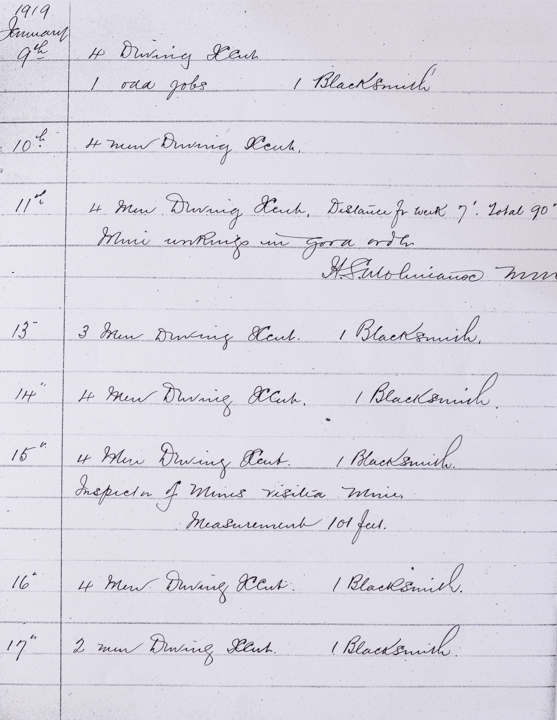 1919
January
9th 4 Driving Xcut
1 odd jobs 1 Blacksmith
10th 4 men Driving Xcut.
11th 4 Men Driving Xcut. Distance for week 7'. Total 90'
Mine workings in good order
13" 3 Men Driving Xcut. 1 Blacksmith.
14" 4 Men Driving Xcut. 1 Blacksmith.
15" 4 Men Driving Xcut. 1 Blacksmith.
Inspector of Mines visited Mine.
Measurement 101 feet.
16" 4 Men Driving Xcut. 1 Blacksmith.
17" 2 men Driving Xcut. 1 Blacksmith.